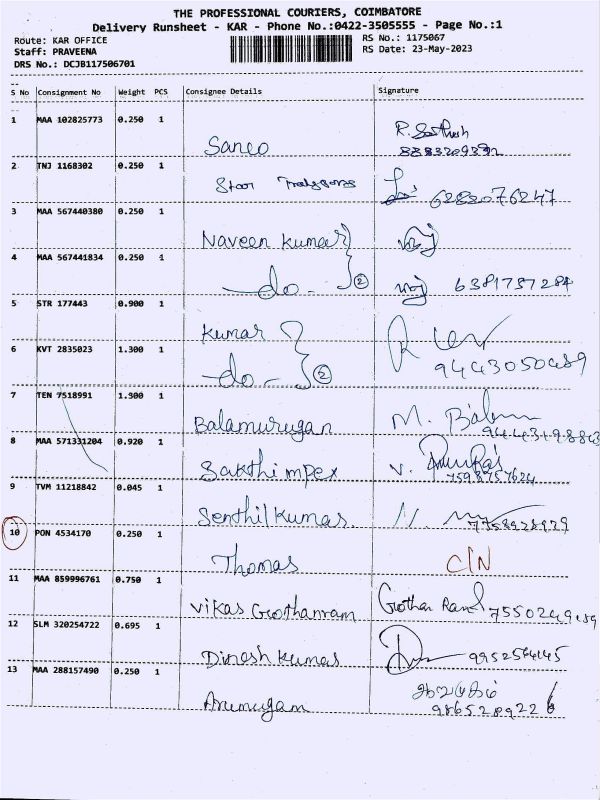 THE PROFESSIONAL COURIERS, COIMBATORE
Delivery Runsheet - KAR - Phone No.:0422-3505555 - Page No.:1
Route: KAR OFFICE
RS No.: 1175067
Staff: PRAVEENA
RS Date: 23-May-2023
DRS No.: DCJB117506701
S No Consignment No Weight PCS Consignee Details Signature
1 MAA 102825773 0.250 1
R. Sathish
Sanco 8883209392
2 TNJ 1168302 0.250 1
Star
6282076247
3 MAA 567440380 0.250 1
Naveen Kumar
4 MAA 567441834 0.250 1
-do- 2 6381737284
5 STR 177443 0.900 1
Kumar
6 KVT 2835023 1.300 1
-do- 2 9443050489
7 TEN 7518991 1.300 1
Balamurugan M. Babu
9443198843
8 MAA 571331204 0.920 1
Sakthi mpex V.
7598757624
9 TVM 11218842 0.045 1
Senthil Kumar 7758928929
10 PON 4534170 0.250 1
Thomas C/N
11 MAA 859996761 0.750 1
Vikas Gowthamram
12 SLM 320254722 0.695 1
Dinesh Kumar 9952564145
13 MAA 288157490 0.250 1
ஆறுமுகம்
Arumugam 9865289226